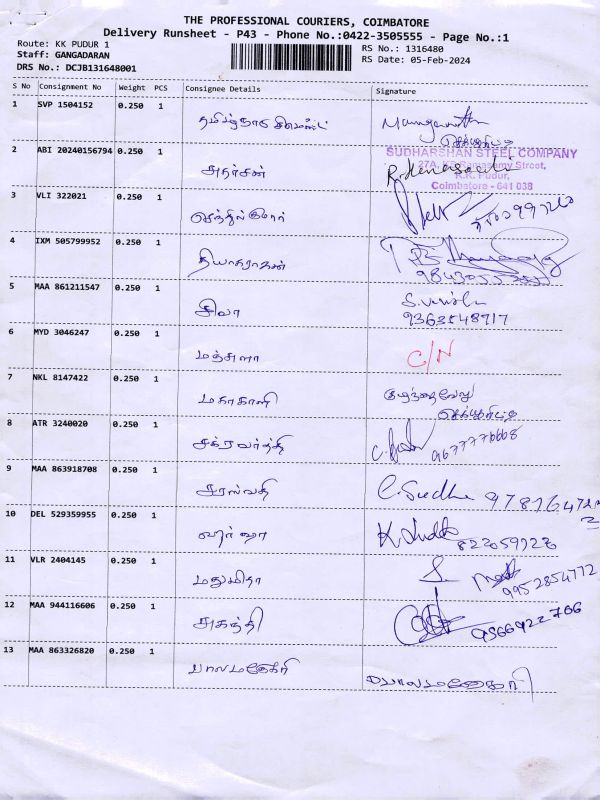 THE PROFESSIONAL COURIERS, COIMBATORE
Delivery Runsheet - P43 - Phone No.:0422-3505555 - Page No.:1
Route: KK PUDUR 1
Staff: GANGADARAN
DRS No.: DCJB131648001
RS No.: 1316480
RS Date: 05-Feb-2024
S No Consignment No Weight PCS Consignee Details Signature
1 SVP 1504152 0.250 1 தமிழ்நாடு சிமெண்ட்
2 ABI 20240156794 0.250 1 அதர்சன்
SUDHARSHAN STEEL COMPANY
27A, Ramasamy Street,
K.K. Pudur,
Coimbatore - 641 038
3 VLI 322021 0.250 1 செந்தில்குமார்
4 IXM 505799952 0.250 1 தியாகராகன்
5 MAA 861211547 0.250 1 சிவா
9363548917
6 MYD 3046247 0.250 1 மஞ்சுளா C/N
7 NKL 8147422 0.250 1 மகாகாளி குழந்தைவேலு
8 ATR 3240020 0.250 1 சக்ரவர்த்தி
9677776668
9 MAA 863918708 0.250 1 சரஸ்வதி C. Sudha
10 DEL 529359955 0.250 1
11 VLR 2404145 0.250 1 மதுமிதா
9952854772
12 MAA 944116606 0.250 1 அகத்தி
9566922766
13 MAA 863326820 0.250 1 பாலமனோகரி பாலமனோகரி